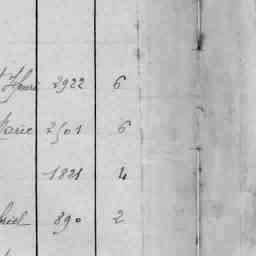 Henri 2922 6
Marie 2501 6
1821 4
890 2